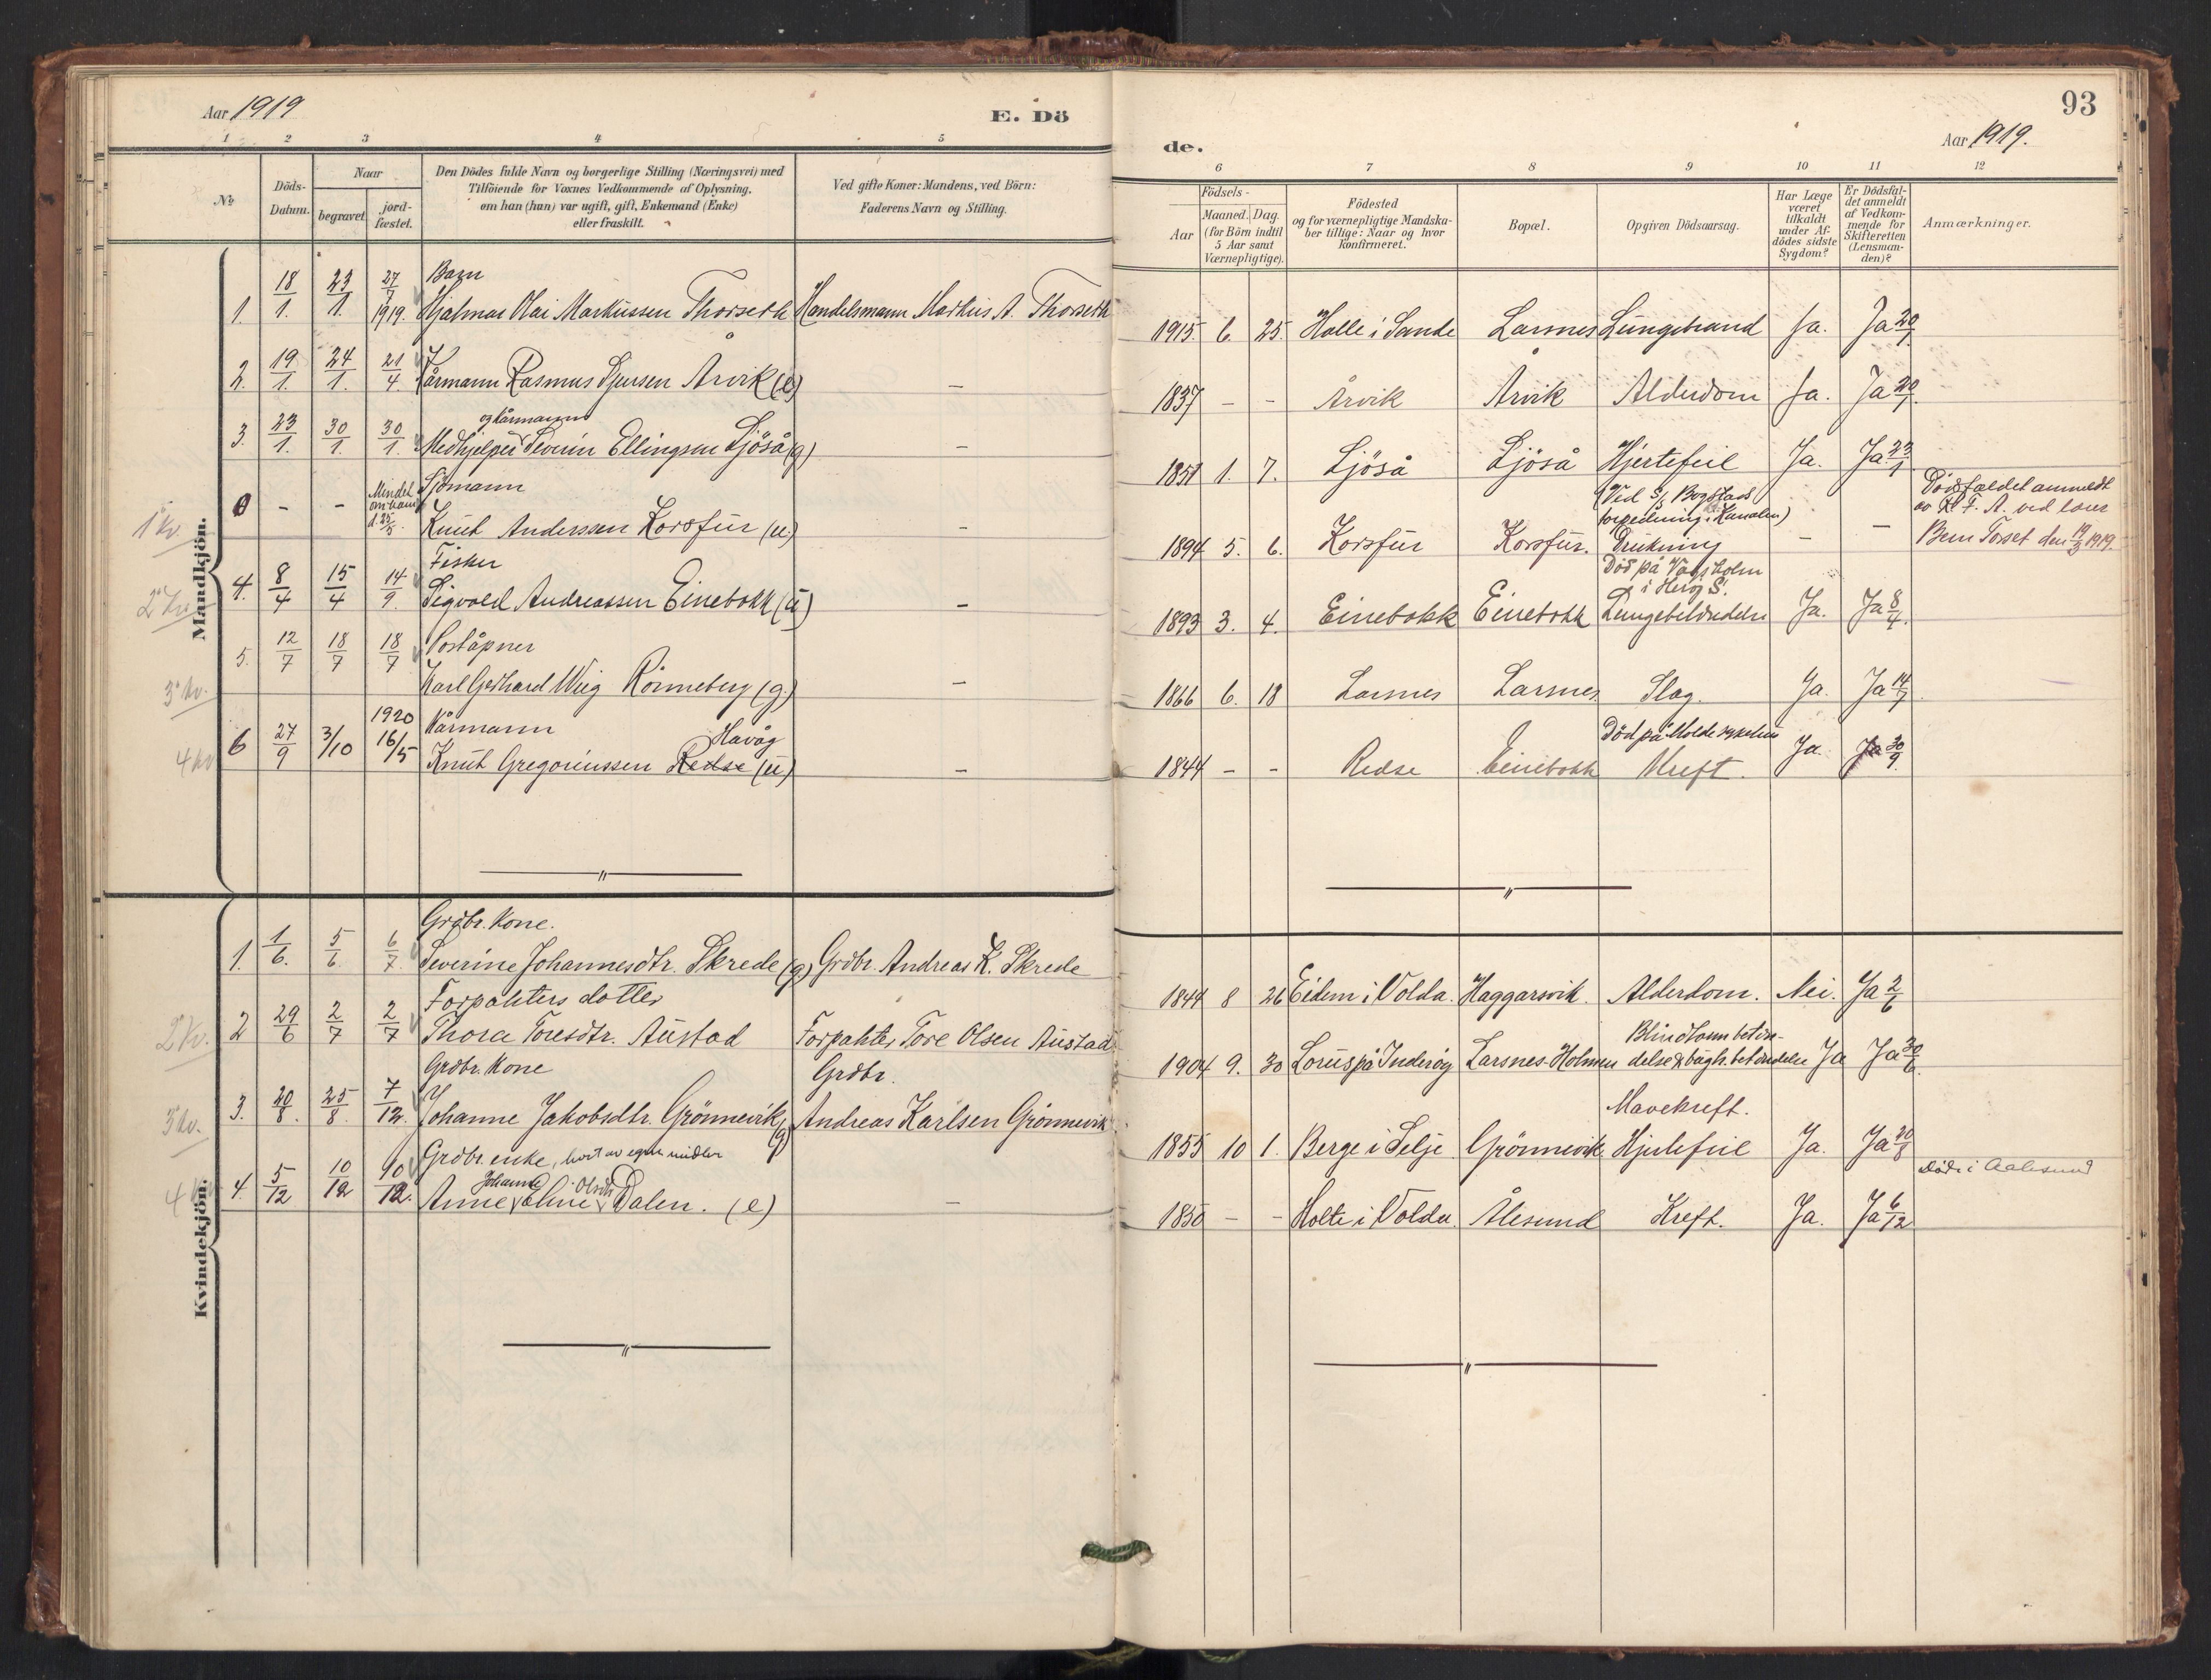 Aar 1919
E. Dö
1 2 3 4 5
№
Döds-Datum.
Naar
begravet.
jord-fæstet.
Den Dödes fulde Navn og borgerlige Stilling (Næringsvei) med
Tilföiende for Voxnes Vedkommende af Oplysning,
om han (hun) var ugift, gift, Enkemand (Enke)
eller fraskilt.
Ved gifte Koner: Mandens, ved Börn:
Faderens Navn og Stilling.
Mandkjön.
Barn
1. 18/1. 23/1. 27/7 1919. Hjalmar Olai Markussen Thorseth Handelsmann Markus A. Thorseth
2. 19/1. 24/1. 21/4. Kårmann Rasmus Sjursen Årvik (e) –
og kårmann
3. 23/1. 30/1. 30/1. Medhjelper Severin Ellingsen Ljöså (g) –
Sjömann
1 kv. 0 – – Mindet om ham d. 25/5 Knut Anderssen Korsfur (u) –
Fisker
2 kv. 4. 8/4 15/4 14/9. Sigvald Andreassen Einebokk (u) –
Poståpner
5. 12/7 18/7 18/7
3 kv. Karl Gerhard Wiig Rönneberg (g.) –
1920 Kårmann Havåg
4 kv 6 27/9 3/10 16/5 Knut Gregoriussen Redse (u) –
"
Kvindekjön.
Grdbr. Kone.
1. 1/6. 5/6 6/7. Severine Johannesdtr. Skrede (g.) Grdbr. Andreas K. Skrede
Forpakters datter
2 kv. 2 29/6 2/7 2/7 Thora Toresdtr. Austad Forpakter Tore Olsen Austad
Grdbr. Kone Grdbr.
3 kv. 3. 20/8. 25/8. 7/12. Johanne Jakobsdtr. Grönnevik (g) Andreas Karlsen Grönnevik
Grdbr. enke, levet av egne midler
Johanne Olsdtr
4 kv 4. 5/12 10/12 10/12. Anne Eline Dalen. (e) –
"
93
de.
Aar 1919.
6 7 8 9 10 11 12
Födsels-
Aar
Maaned. Dag.
(for Börn indtil
5 Aar samt
Værnepligtige).
Födested
og for værnepligtige Mandska-
ber tillige: Naar og hvor
konfirmeret.
Bopæl.
Opgiven Dödsaarsag.
Har Læge
været
tilkaldt
under Af-
dödes sidste
Sygdom?
Er Dödsfal-
det anmeldt
af Vedkom-
mende for
Skifteretten
(Lensman-
den)?
Anmærkninger.
1915. 6. 25. Halle i Sande Larsnes Lungebrand Ja. Ja 20/1
1837 – – Årvik Årvik Alderdom Ja. Ja 20/1
1851 1. 7. Ljöså Ljöså Hjertefeil Ja. Ja 23/1
(Ved S/S Bogstads
torpedering i Kanalen)
1894 5. 6. Korsfur Korsfur. Drukning – –
Dödsfaldet anmeldt
av
Bern Torset den 19/3 1919.
Död på Vågsholm
i Herö S.
1893 3. 4. Einebokk Einebokk Lungebetændelse Ja. Ja 8/4.
1866 6. 18 Larsnes Larsnes. Slag. Ja. Ja 14/7.
Död på Molde sykehus
1844 – – Redse Einebokk Kreft. Ja. Ja 30/9.
"
1844 8 26 Eidem i Volda. Haggarsvik. Alderdom. Nei. Ja 2/6
Blindtarmbetæn-
1904 9. 30 Lorus på Inderöy Larsnes-Holmen delse & bugh. betændelse Ja Ja 30/6.
Mavekreft.
1855 10 1. Berge i Selje Grönnevik. Hjertefeil Ja. Ja 20/8
Döde i Aalesund
1850 – – Holte i Volda. Ålesund Kreft. Ja. Ja 6/12
"